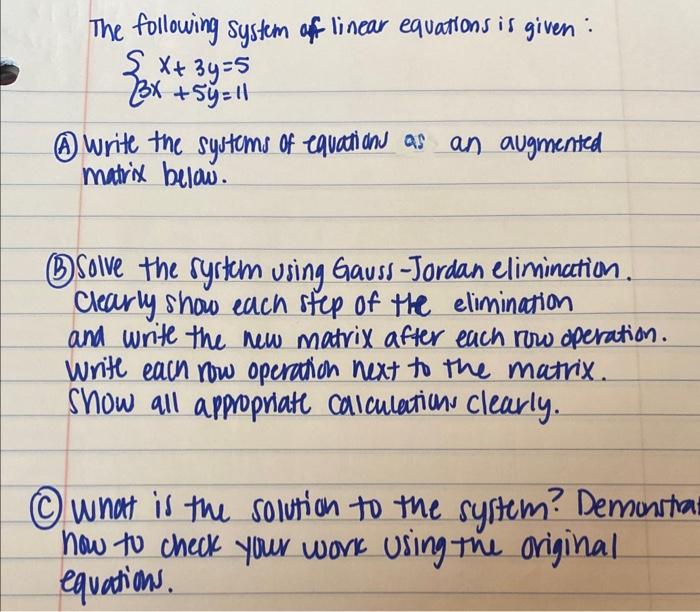 The following system of linear equations is given :
{ x + 3y = 5
{ 3x + 5y = 11
Ⓐ Write the systems of equations as an augmented
matrix below.
Ⓑ Solve the system using Gauss-Jordan elimination.
Clearly show each step of the elimination
and write the new matrix after each row operation.
Write each row operation next to the matrix.
Show all appropriate calculations clearly.
Ⓒ What is the solution to the system? Demonstrat
how to check your work using the original
equations.